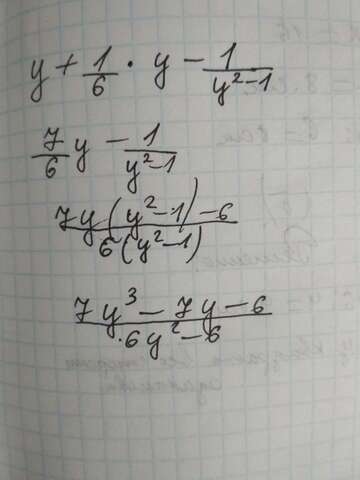 y + 1/6 · y − 1/(y²−1)
7/6 y − 1/(y²−1)
7y(y²−1)−6 / 6(y²−1)
7y³ − 7y − 6 / 6y² − 6